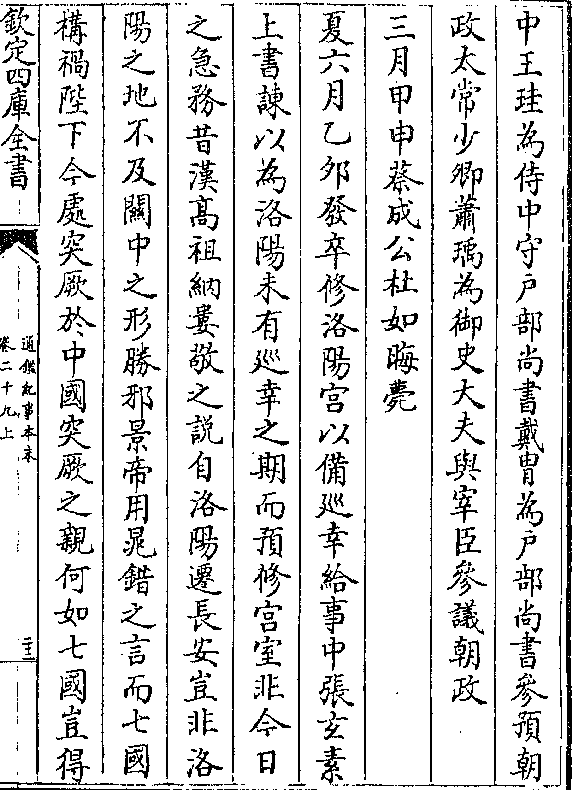 中王珪為侍中守戸部尚書戴胄為戸部尚書參預朝
政太常少卿蕭瑀為御史大夫與宰臣參議朝政
三月甲申蔡成公杜如晦薨
夏六月乙卯發卒修洛陽宫以備巡幸給事中張玄素
上書諫以為洛陽未有巡幸之期而預修宫室非今日
之急務昔漢髙祖納婁敬之説自洛陽遷長安豈非洛
陽之地不及闗中之形勝邪景帝用晁錯之言而七國
構禍陛下今處突厥於中國突厥之親何如七國豈得
欽定四庫全書
通鑑紀事本末
卷二十九上
二十三